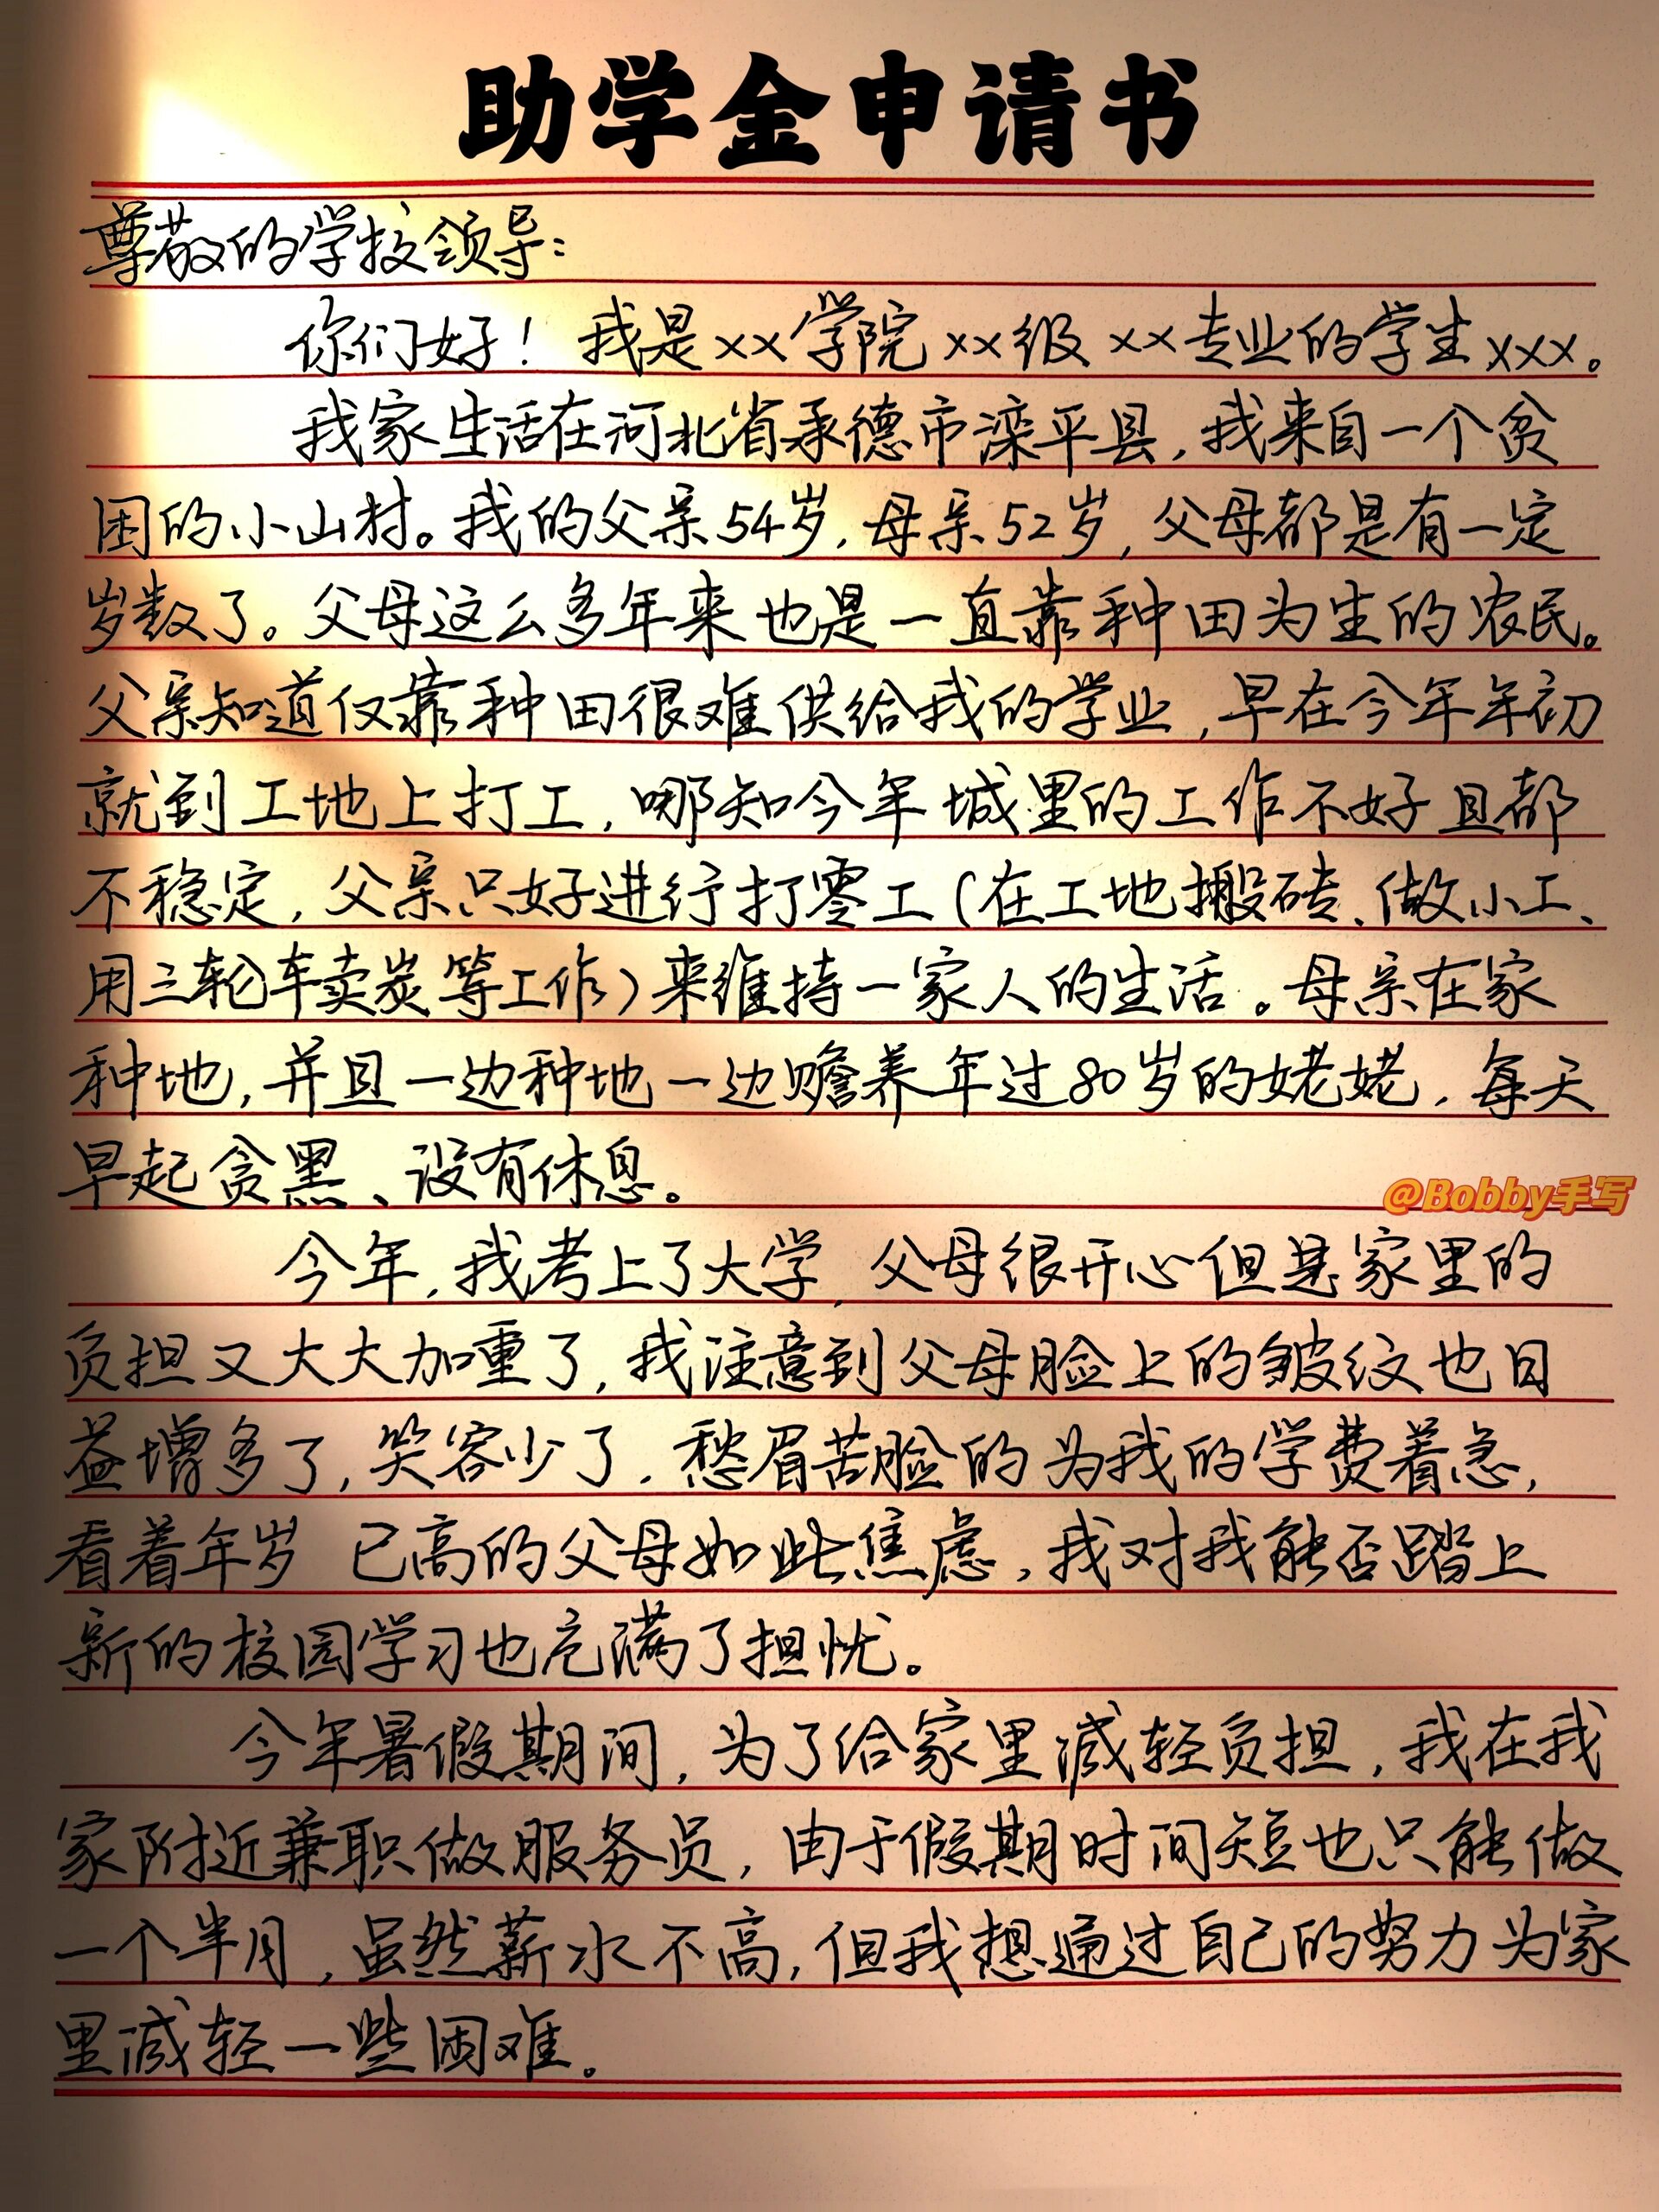 助学金申请书
尊敬的学校领导：
你们好！我是xx学院xx级xx专业的学生xxx。
我家生活在河北省承德市滦平县，我来自一个贫
困的小山村。我的父亲54岁，母亲52岁，父母都是有一定
岁数了。父母这么多年来也是一直靠种田为生的农民。
父亲知道仅靠种田很难供给我的学业，早在今年年初
就到工地上打工，哪知今年城里的工作不好且都
不稳定，父亲只好进行打零工（在工地搬砖、做小工、
用三轮车卖炭等工作）来维持一家人的生活。母亲在家
种地，并且一边种地一边赡养年过80岁的姥姥，每天
早起贪黑、没有休息。
@Bobby手写
今年，我考上了大学，父母很开心但是家里的
负担又大大加重了，我注意到父母脸上的皱纹也日
益增多了，笑容少了，愁眉苦脸的为我的学费着急，
看着年岁已高的父母如此焦虑，我对我能否踏上
新的校园学习也充满了担忧。
今年暑假期间，为了给家里减轻负担，我在我
家附近兼职做服务员，由于假期时间短也只能做
一个半月，虽然薪水不高，但我想通过自己的努力为家
里减轻一些困难。